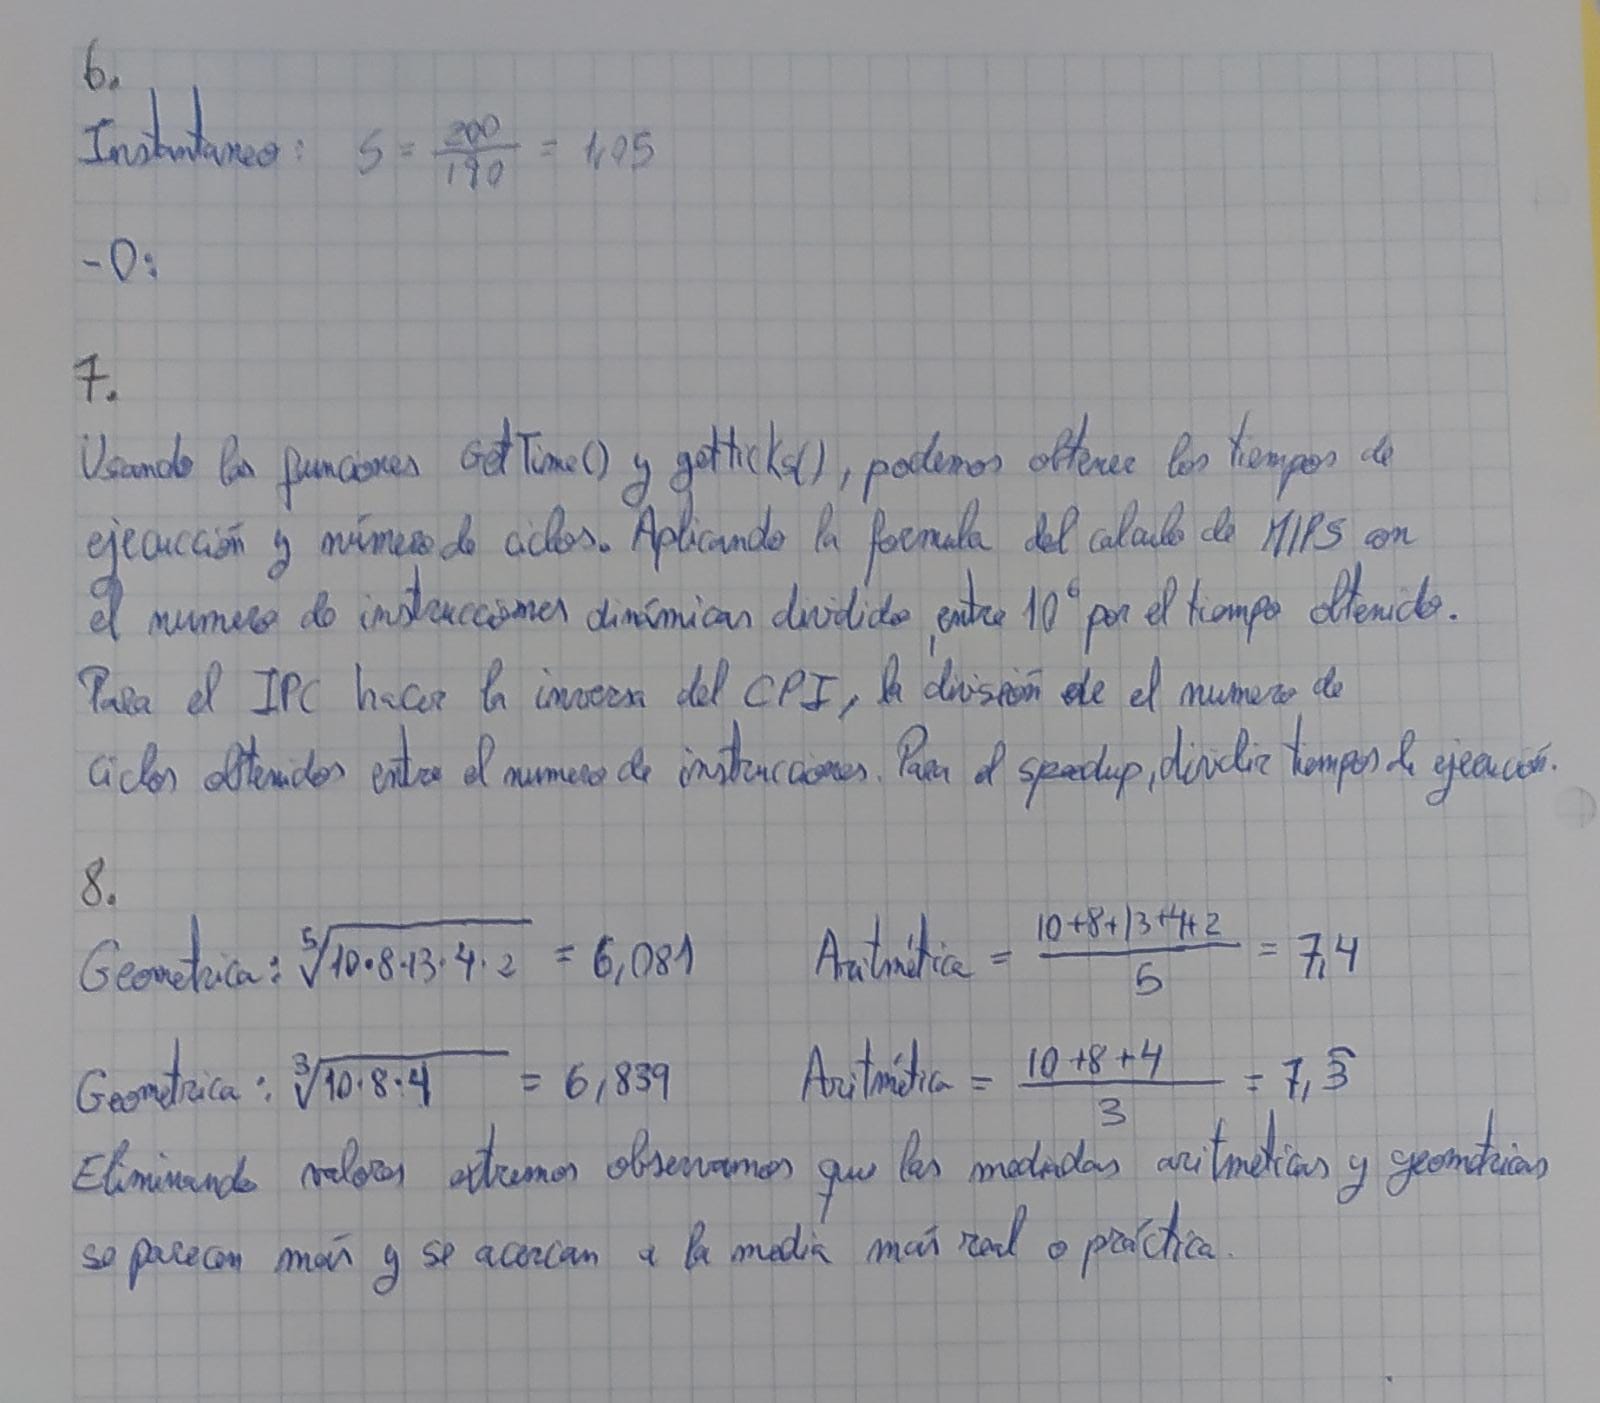 6.
Instantaneo: S = 200/190 = 1,05
-O:
7.
Usando las funciones GetTime() y getticks(), podemos obtener los tiempos de
ejecucción y número de ciclos. Aplicando la formula del calculo de MIPS con
el numero de instrucciones dinámicas dividido entre 10⁶ por el tiempo obtenido.
Para el IPC hacer la inversa del CPI, la división de el numero de
ciclos obtenidos entre el numero de instrucciones. Para el speedup, dividir tiempos de ejecución.
8.
Geometrica: ⁵√10·8·13·4·2 = 6,081 Aritmética = 10+8+13+4+2/5 = 7,4
Geometrica: ³√10·8·4 = 6,839 Aritmética = 10+8+4/3 = 7,3̂
Eliminando valores extremos observamos que las medidas aritmeticas y geometricas
se parecen más y se acercan a la media más real o práctica.